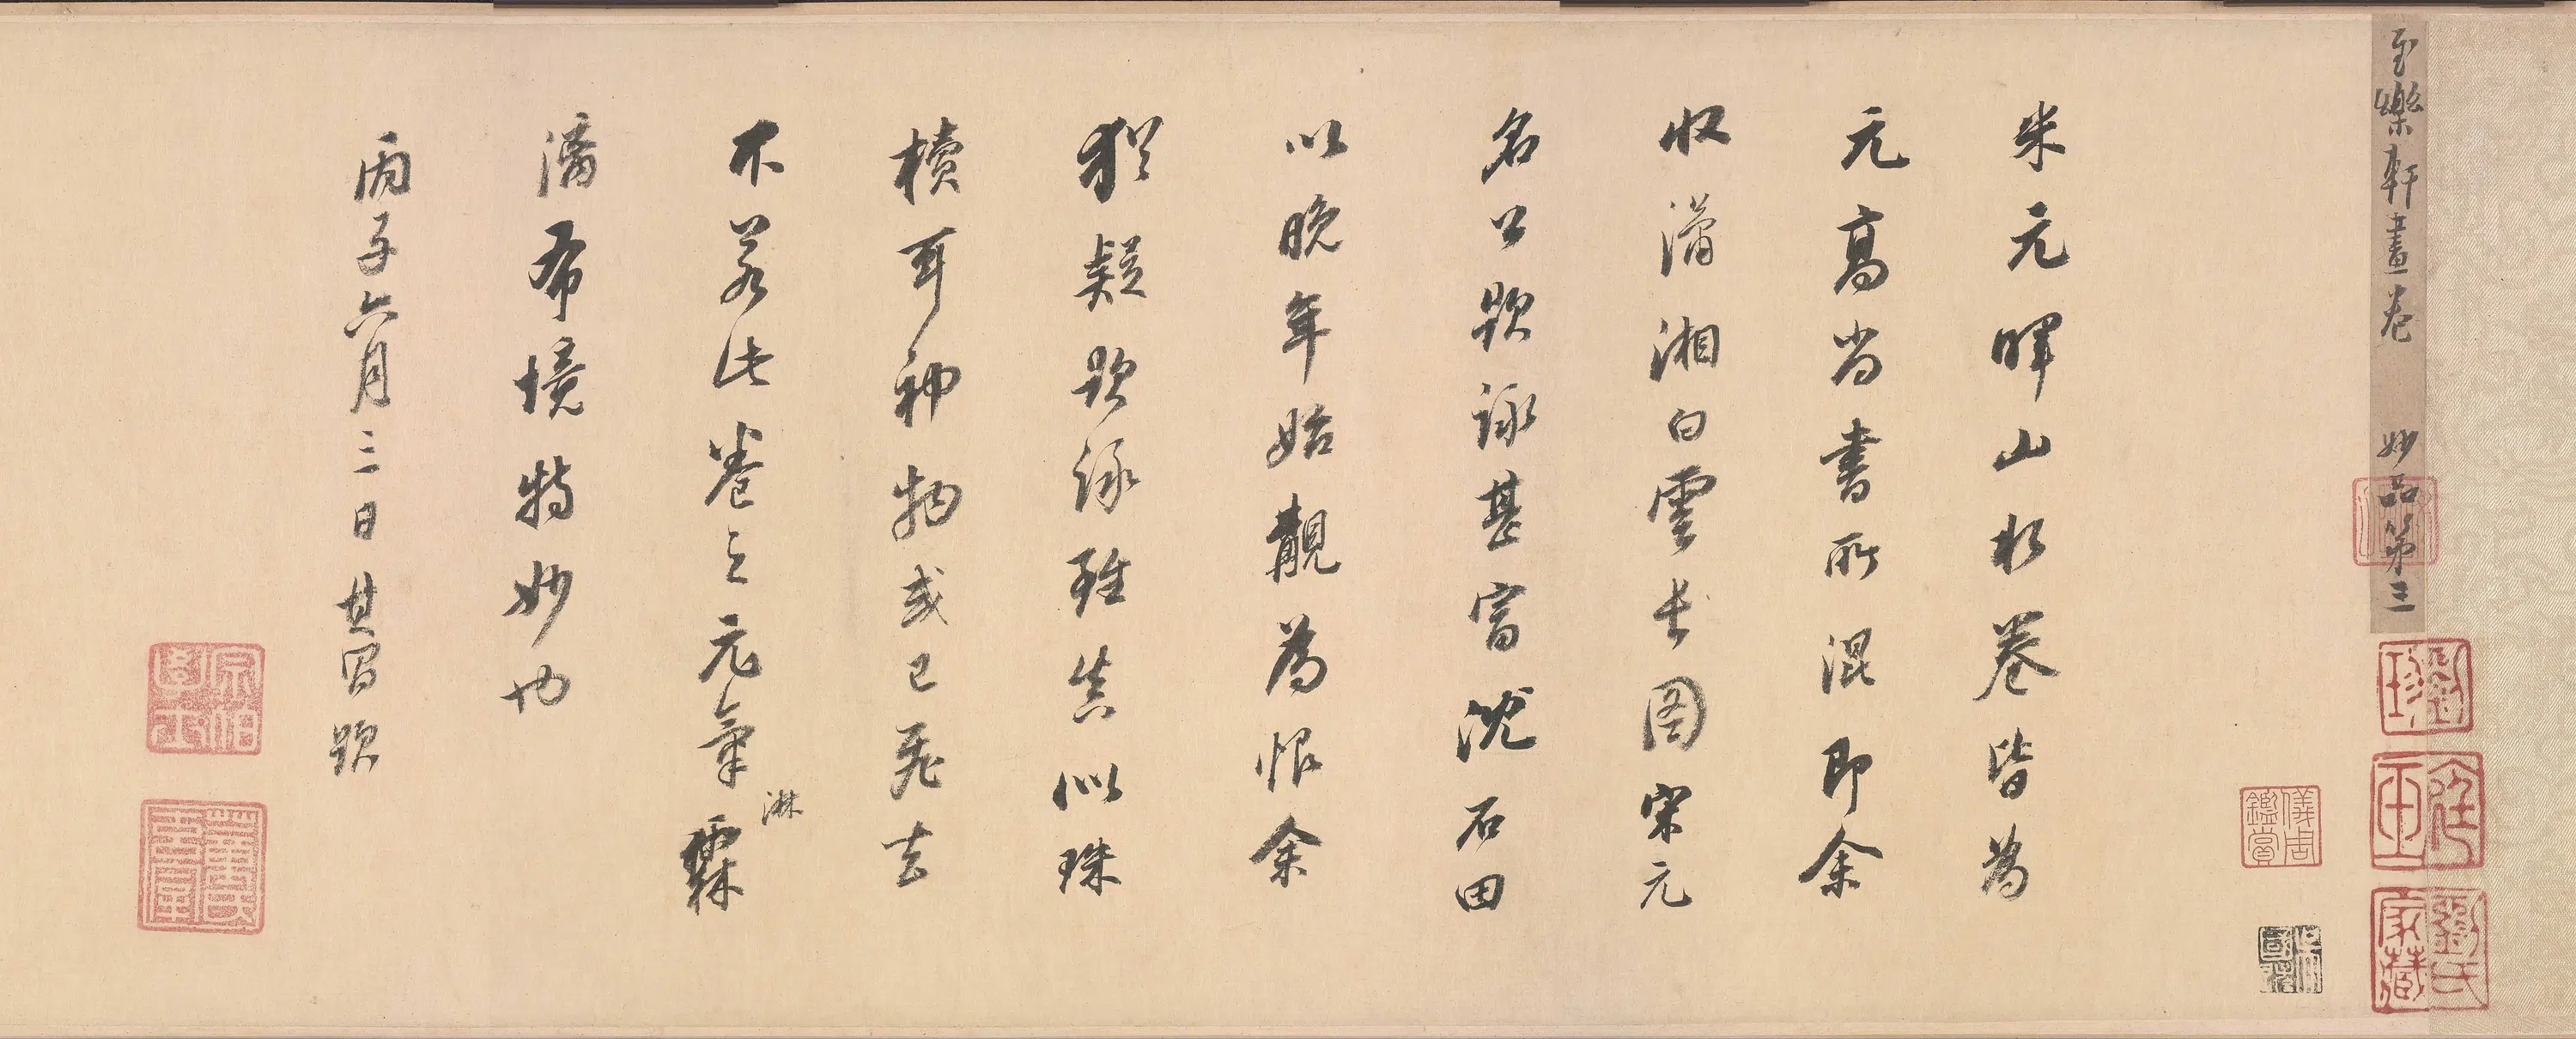 至樂軒畫卷 妙品第三
米元暉山水卷皆為
元高尚書所混即余
收瀟湘白雲長圖宋元
名公題詠甚富沈石田
以晚年始覩為恨余
猶疑題詠雖真似珠
櫝耳神物或已飛去
不若此卷之元氣霖
淋
滿希境特妙也
丙子六月三日其昌題
儀周鑑賞
家藏